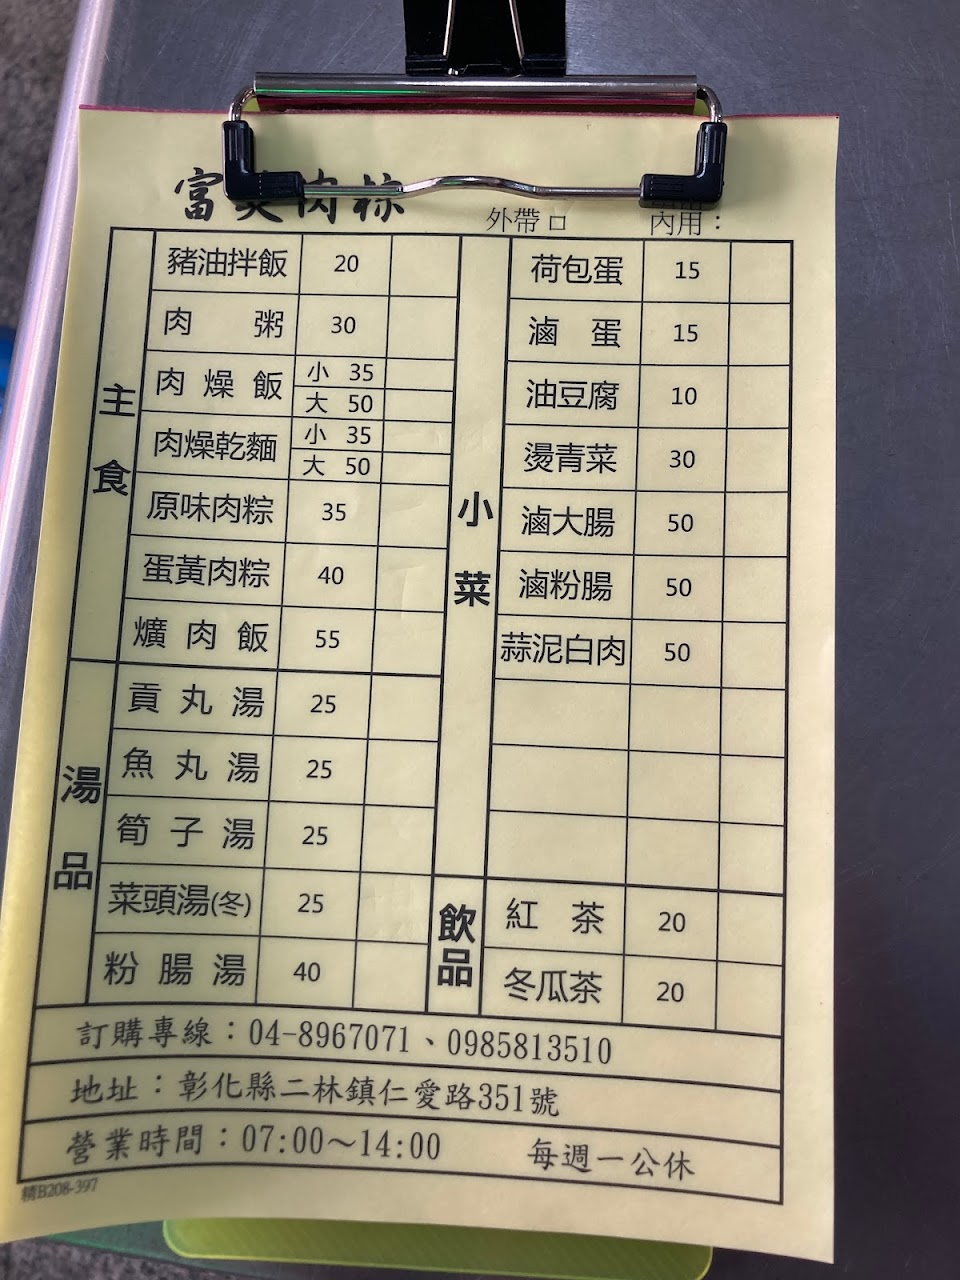 富 肉粽
外帶□ 內用：
主食
豬油拌飯 20
肉粥 30
肉燥飯 小 35
大 50
肉燥乾麵 小 35
大 50
原味肉粽 35
蛋黃肉粽 40
爌肉飯 55
湯品
貢丸湯 25
魚丸湯 25
筍子湯 25
菜頭湯(冬) 25
粉腸湯 40
小菜
荷包蛋 15
滷蛋 15
油豆腐 10
燙青菜 30
滷大腸 50
滷粉腸 50
蒜泥白肉 50
飲品
紅茶 20
冬瓜茶 20
訂購專線：04-8967071、0985813510
地址：彰化縣二林鎮仁愛路351號
營業時間：07:00～14:00 每週一公休
精B208-397